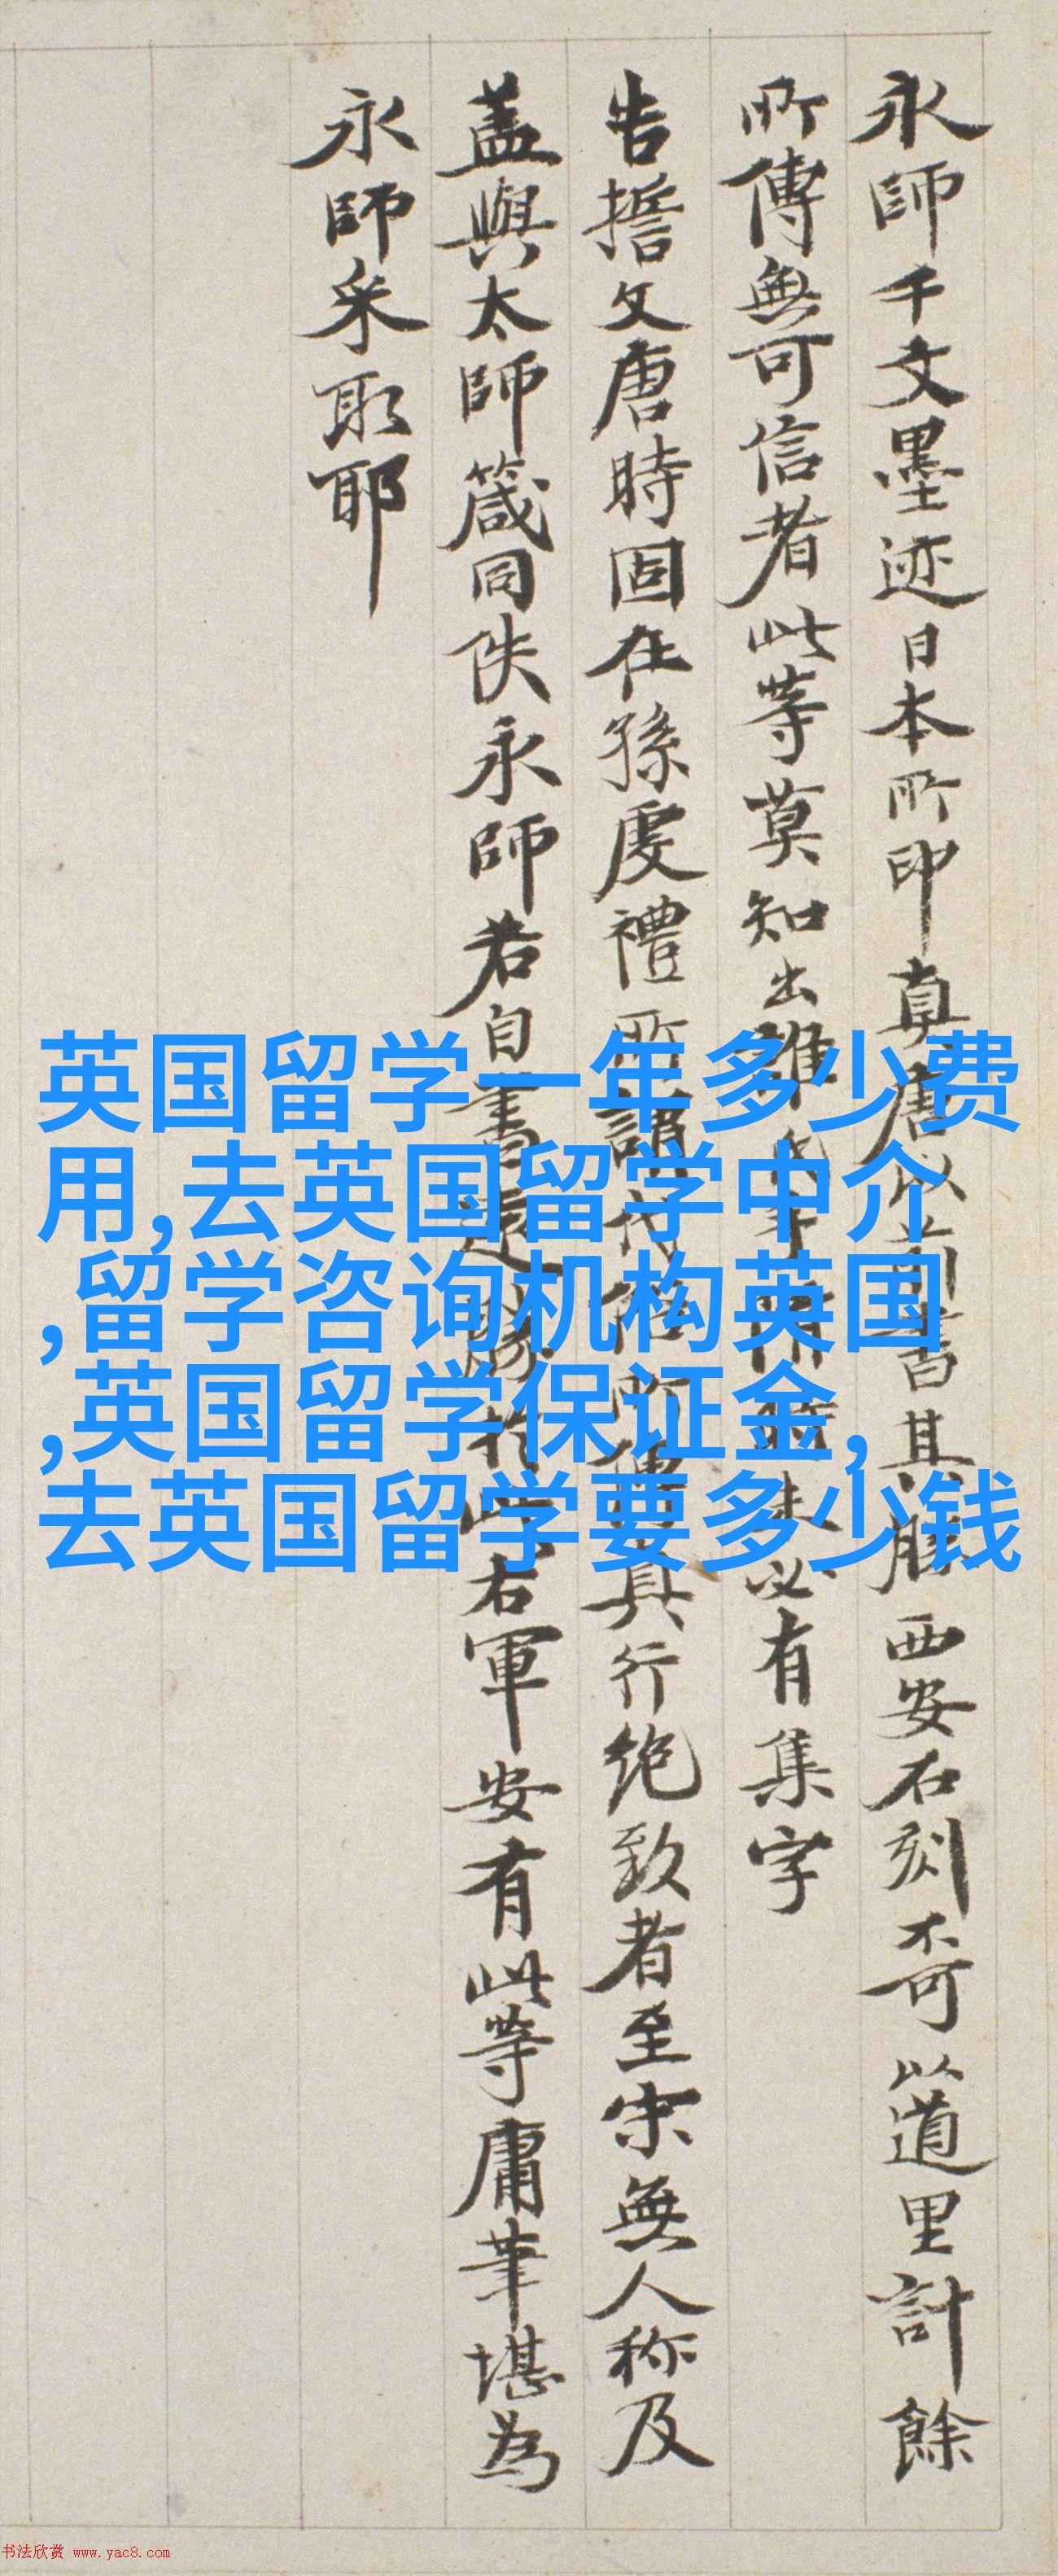 永師千文墨迹日本所印真唐以前書其勝西安石刻奇以道里計餘
所傳無可信者此等莫知出誰氏手未必有集字
告誓文唐時固在孫虔禮所謂代俗所傳真行绝致者至宋無人称及
盖與太師箴同佚永師若自書右軍安有此等庸筆堪為
永師采取耶
英国留学一年多少费
用,去英国留学中介
,留学咨询机构英国
,英国留学保证金,
去英国留学要多少钱
书法欣赏 www.yac8.com